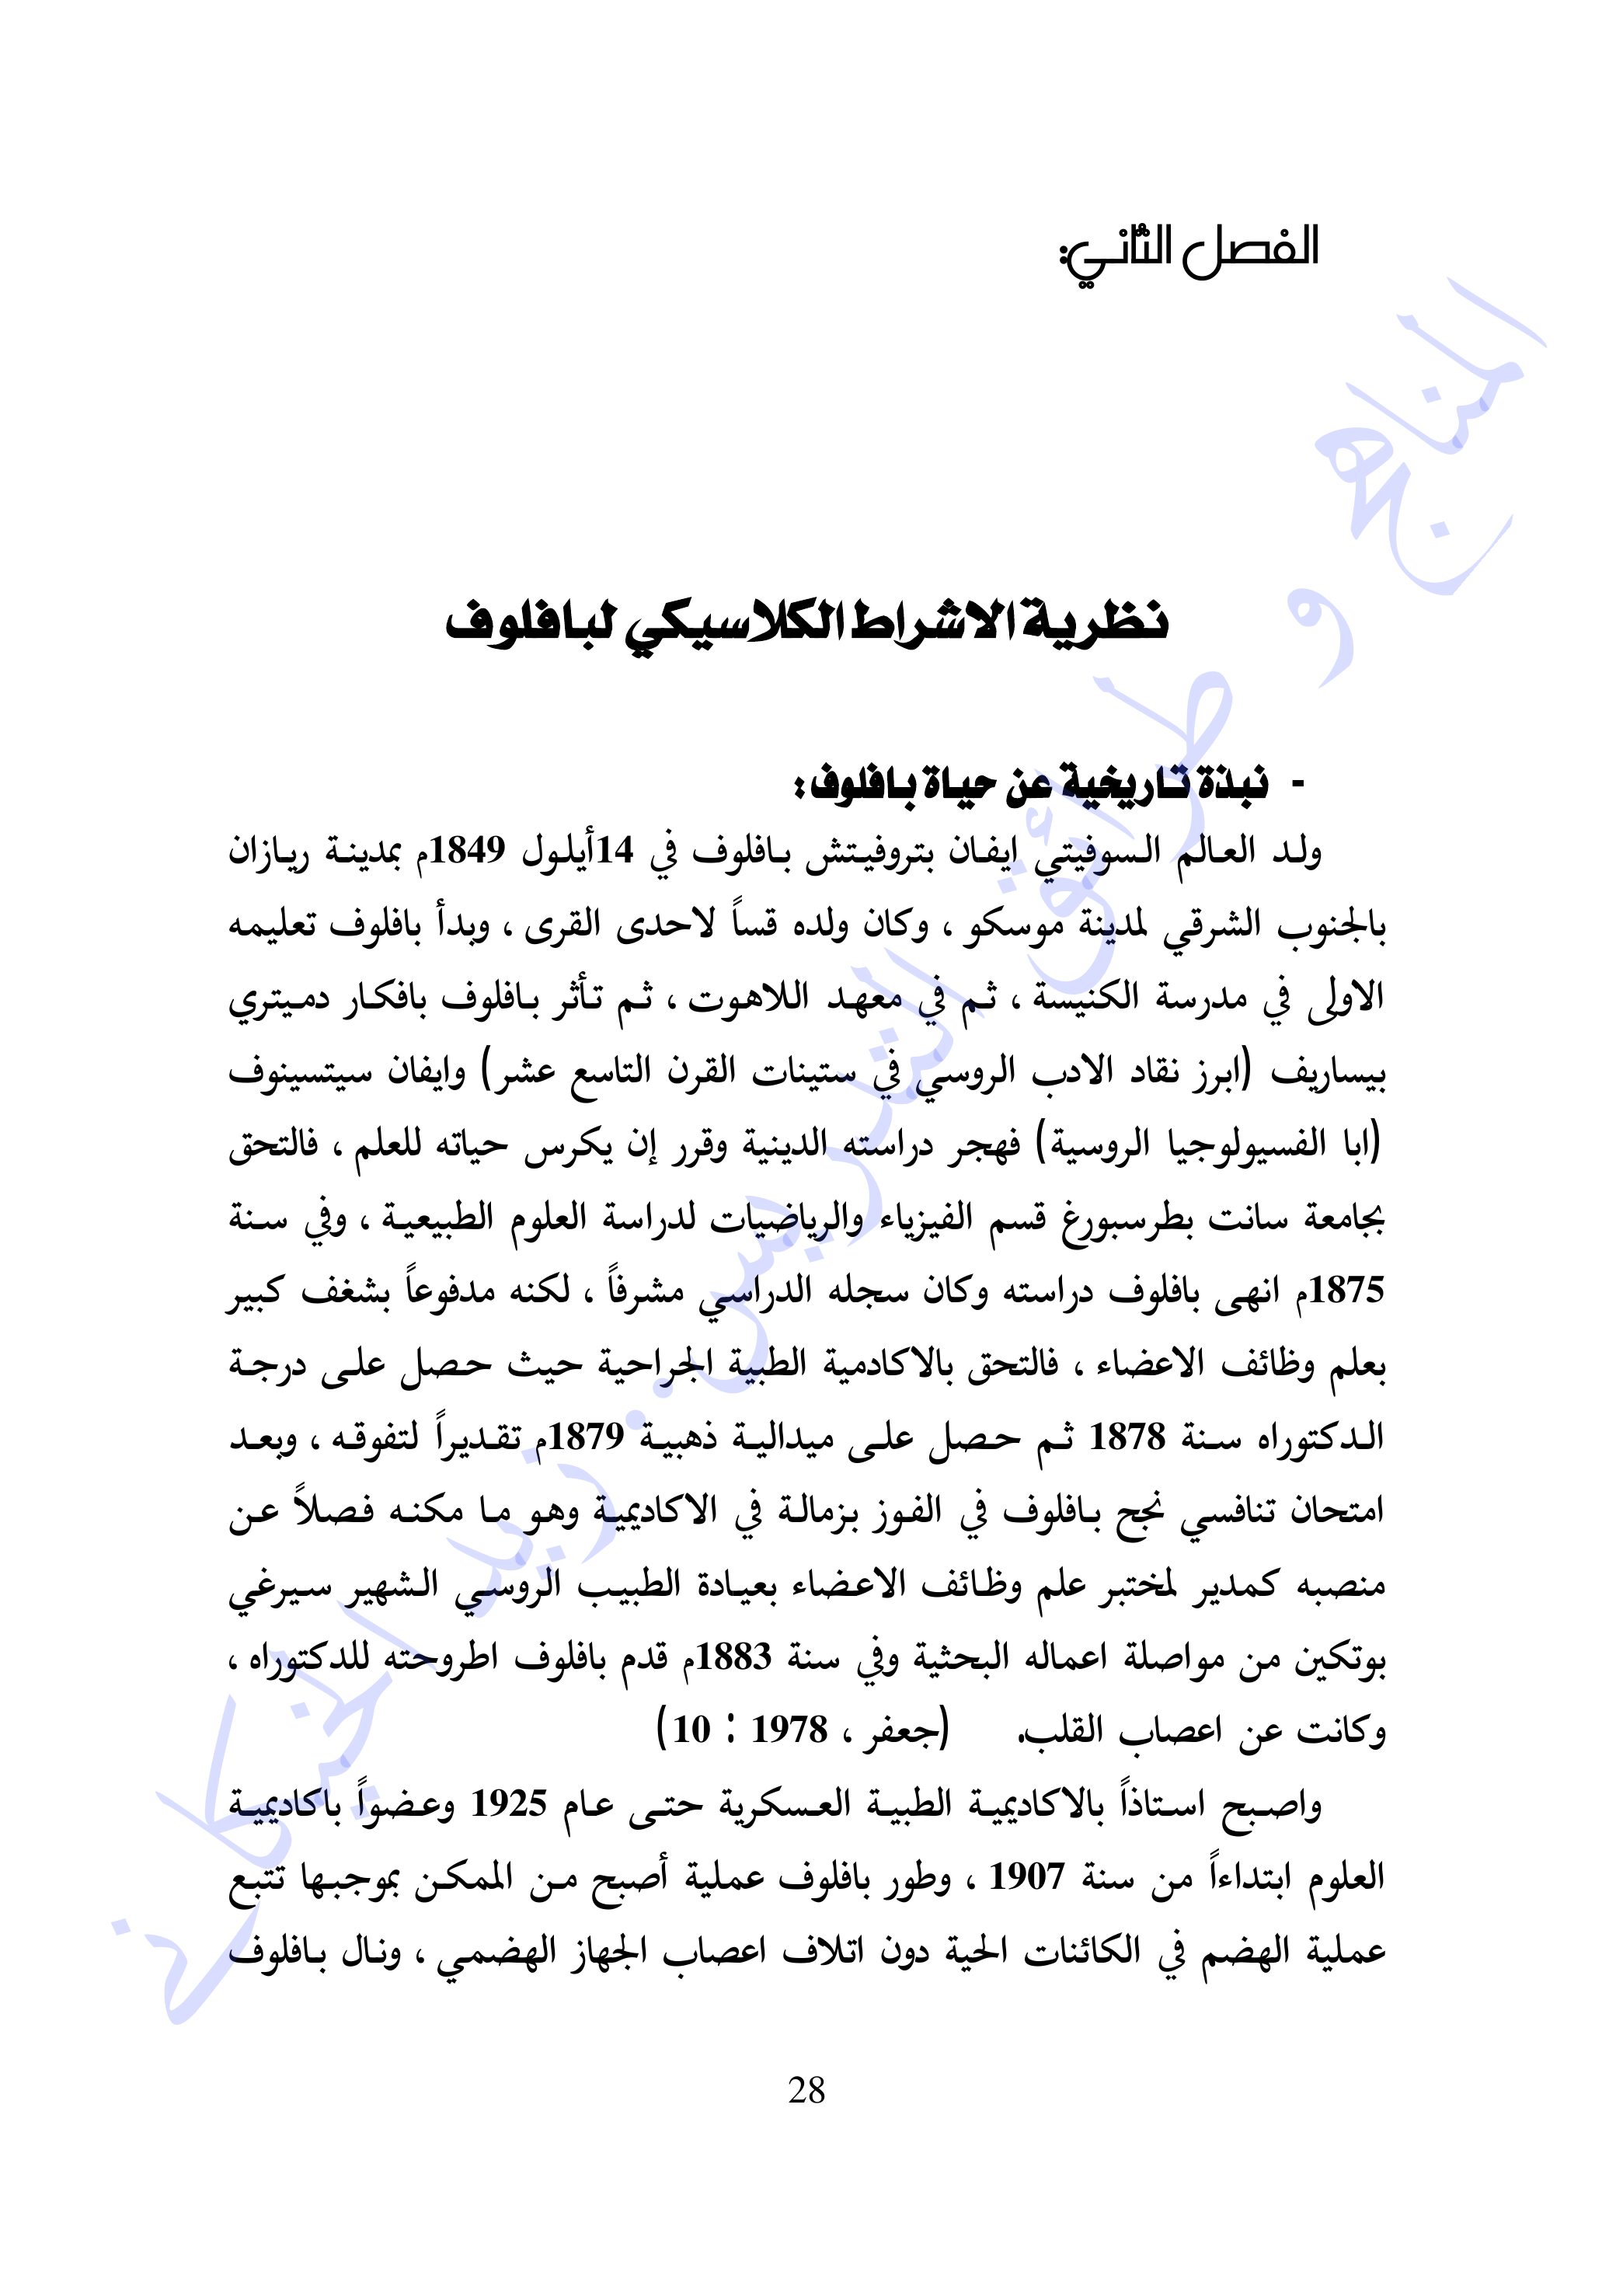 الفصل الثاني:
نظرية الاشراط الكلاسيكي لبافلوف
- نبذة تاريخية عن حياة بافلوف:
ولد العالم السوفيتي ايفان بتروفيتش بافلوف في 14أيلول 1849م بمدينة ريازان
بالجنوب الشرقي لمدينة موسكو ، وكان ولده قساً لاحدى القرى ، وبدأ بافلوف تعليمه
الاولى في مدرسة الكنيسة ، ثم في معهد اللاهوت ، ثم تأثر بافلوف بافكار دميتري
بيساريف (ابرز نقاد الادب الروسي في ستينات القرن التاسع عشر) وايفان سيتسينوف
(ابا الفسيولوجيا الروسية) فهجر دراسته الدينية وقرر إن يكرس حياته للعلم ، فالتحق
بجامعة سانت بطرسبورغ قسم الفيزياء والرياضيات لدراسة العلوم الطبيعية ، وفي سنة
1875م انهى بافلوف دراسته وكان سجله الدراسي مشرفاً ، لكنه مدفوعاً بشغف كبير
بعلم وظائف الاعضاء ، فالتحق بالاكادمية الطبية الجراحية حيث حصل على درجة
الدكتوراه سنة 1878 ثم حصل على ميدالية ذهبية 1879م تقديراً لتفوقه ، وبعد
امتحان تنافسي نجح بافلوف في الفوز بزمالة في الاكاديمية وهو ما مكنه فصلاً عن
منصبه كمدير لمختبر علم وظائف الاعضاء بعيادة الطبيب الروسي الشهير سيرغي
بوتكين من مواصلة اعماله البحثية وفي سنة 1883م قدم بافلوف اطروحته للدكتوراه ،
وكانت عن اعصاب القلب. (جعفر ، 1978 : 10)
واصبح استاذاً بالاكاديمية الطبية العسكرية حتى عام 1925 وعضواً باكاديمية
العلوم ابتداءاً من سنة 1907 ، وطور بافلوف عملية أصبح من الممكن بموجبها تتبع
عملية الهضم في الكائنات الحية دون اتلاف اعصاب الجهاز الهضمي ، ونال بافلوف
28
المناهج و طرائق التدريس: زيد الخيكاني